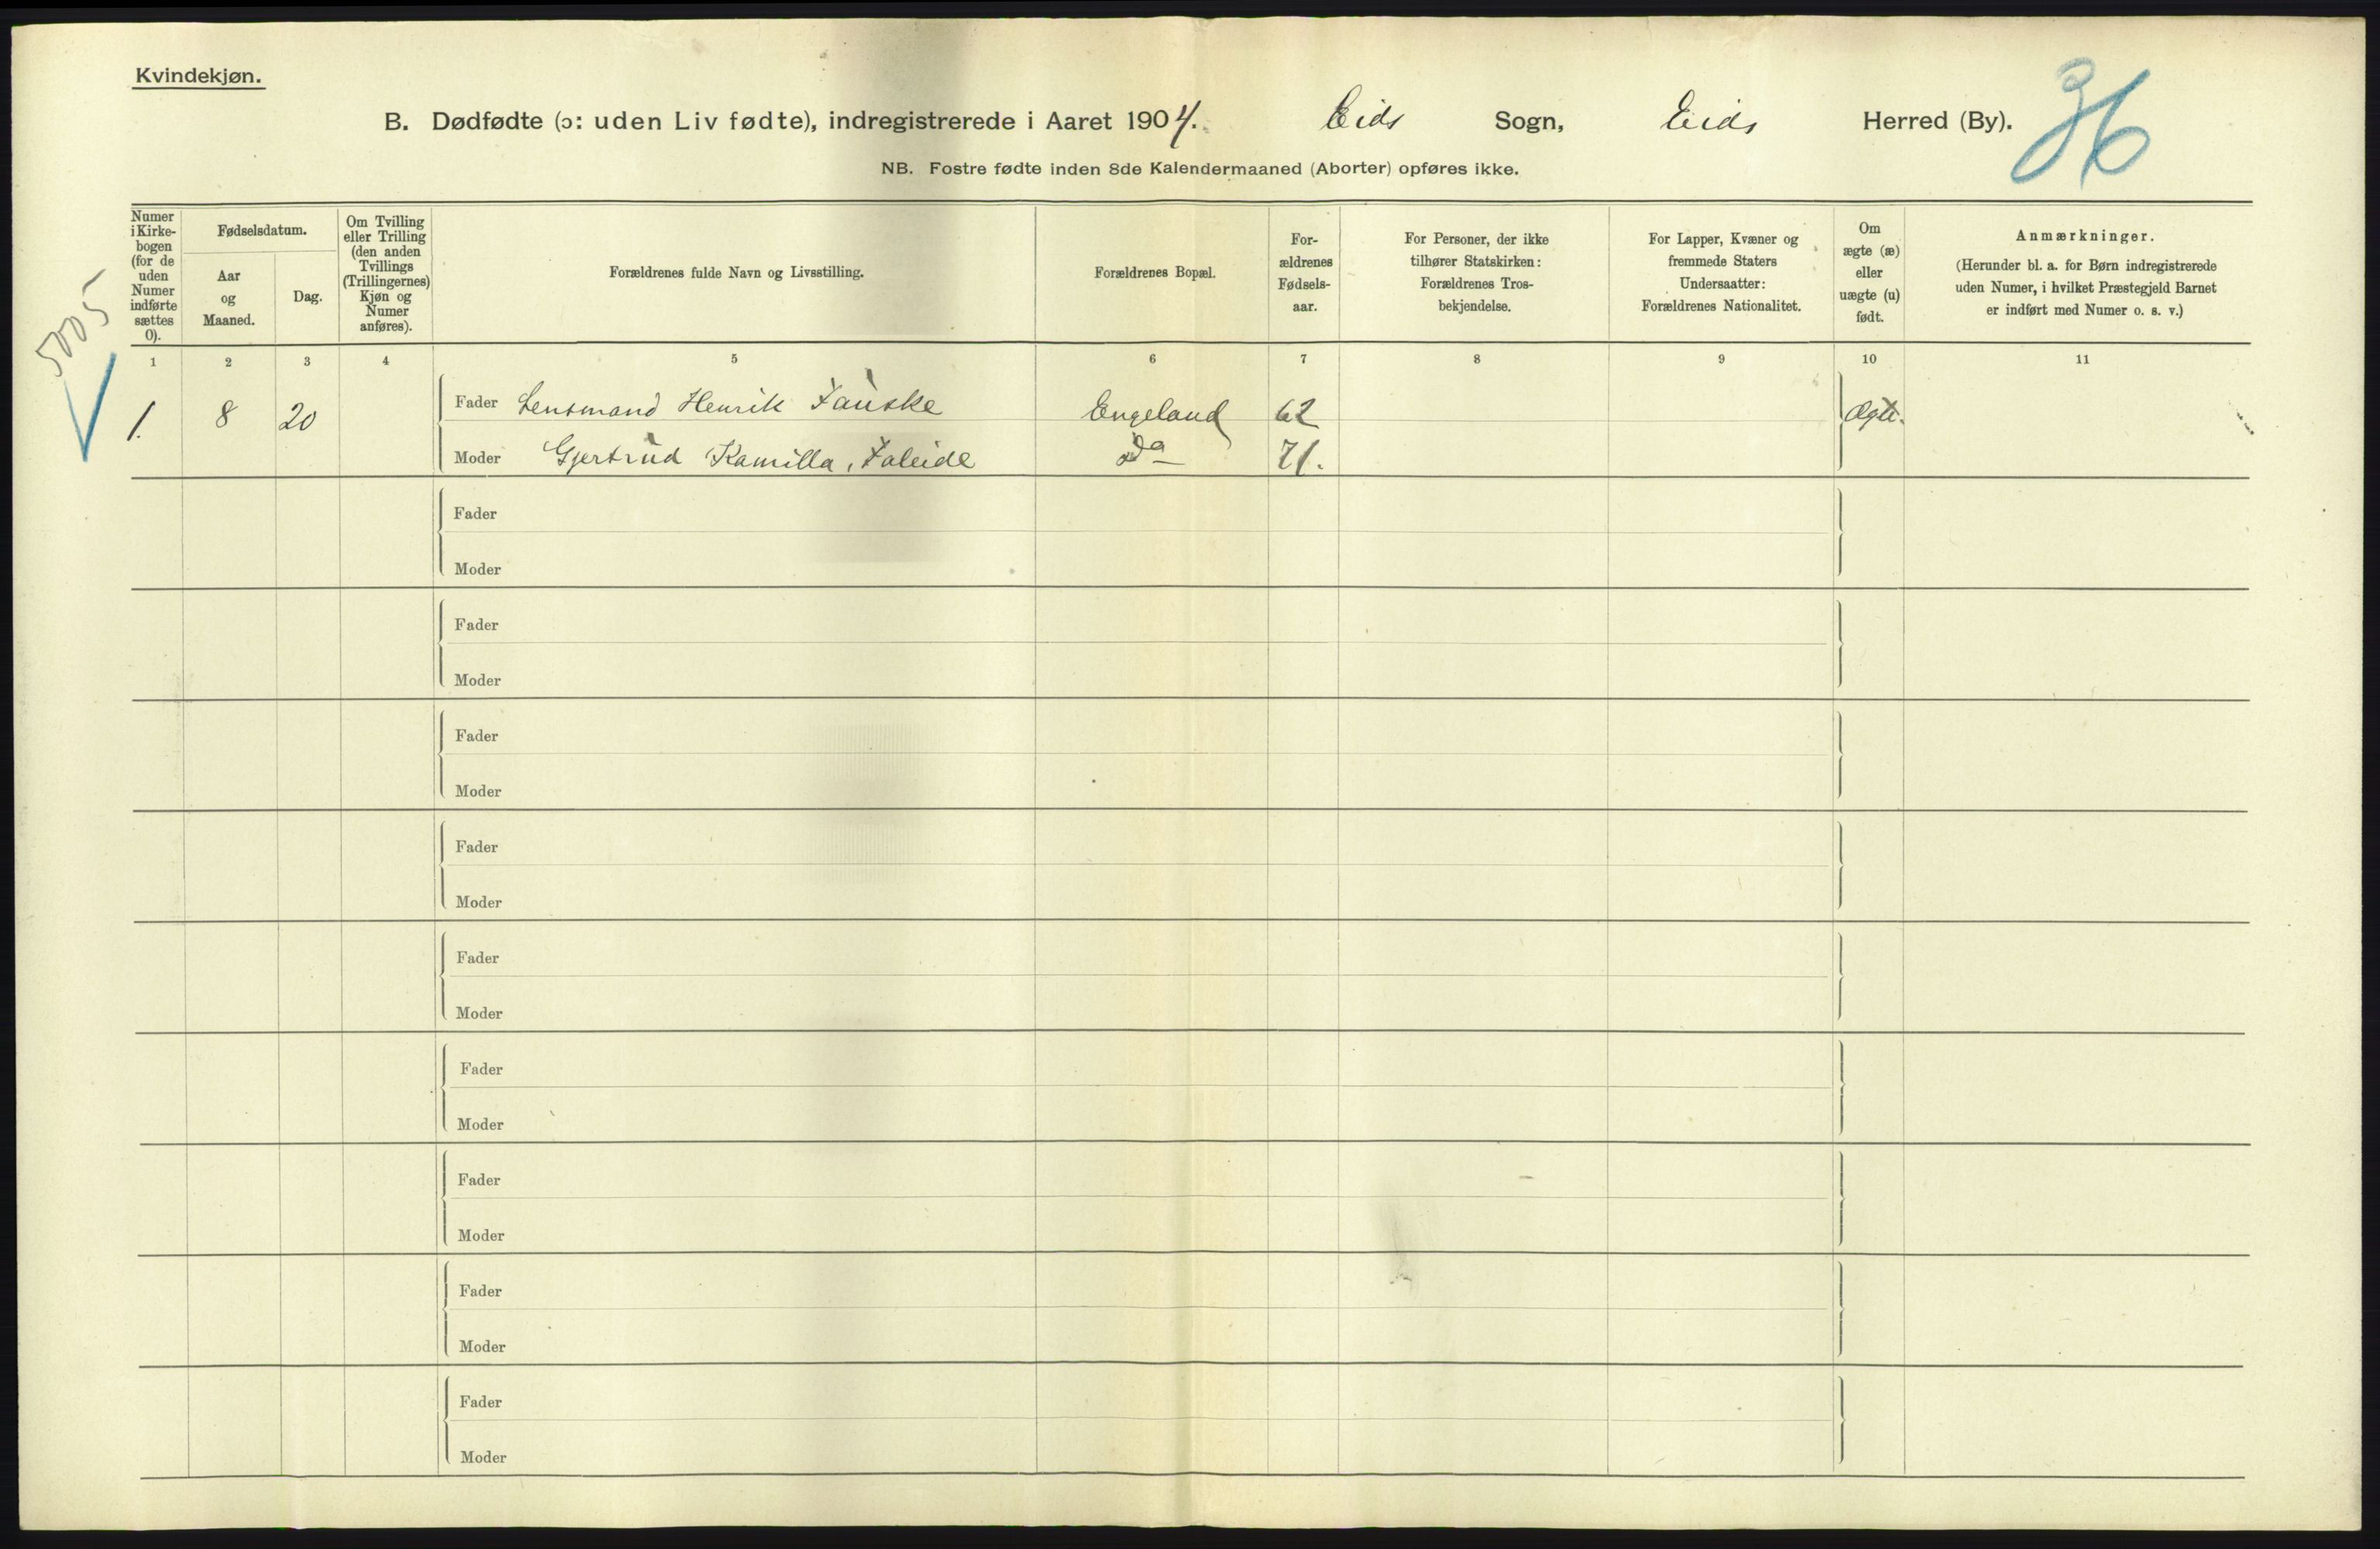 Kvindekjøn.
B. Dødfødte (ɔ: uden Liv fødte), indregistrerede i Aaret 1904. Eids Sogn, Eids Herred (By).
36
NB. Fostre fødte inden 8de Kalendermaaned (Aborter) opføres ikke.
5005
Numer i Kirke-bogen (for de uden Numer indførte sættes 0).
Fødselsdatum.
Aar og Maaned.
Dag.
Om Tvilling eller Trilling (den anden Tvillings (Trillingernes) Kjøn og Numer anføres).
Forældrenes fulde Navn og Livsstilling.
Forældrenes Bopæl.
For-ældrenes Fødsels-aar.
For Personer, der ikke tilhører Statskirken: Forældrenes Tros-bekjendelse.
For Lapper, Kvæner og fremmede Staters Undersaatter: Forældrenes Nationalitet.
Om ægte (æ) eller uægte (u) født.
Anmærkninger.
(Herunder bl. a. for Børn indregistrerede uden Numer, i hvilket Præstegjeld Barnet er indført med Numer o. s. v.)
1 2 3 4 5 6 7 8 9 10 11
1. 8 20 Fader Lensmand Henrik Fauske Engeland 62 Ægte.
Moder Gjertrud Kamilla, Faleide Do 71.
Fader
Moder
Fader
Moder
Fader
Moder
Fader
Moder
Fader
Moder
Fader
Moder
Fader
Moder
Fader
Moder
Fader
Moder